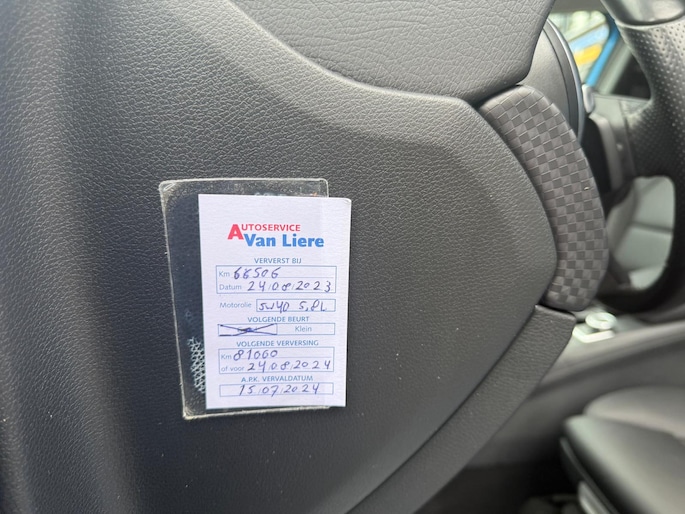 AUTOSERVICE
Van Liere
VERVERST BIJ
Km 66506
Datum 24/08/2023
Motorolie 5W40 5,8L
VOLGENDE BEURT
Klein
VOLGENDE VERVERSING
Km 81000
of voor 24/08/2024
A.P.K. VERVALDATUM
15/07/2024